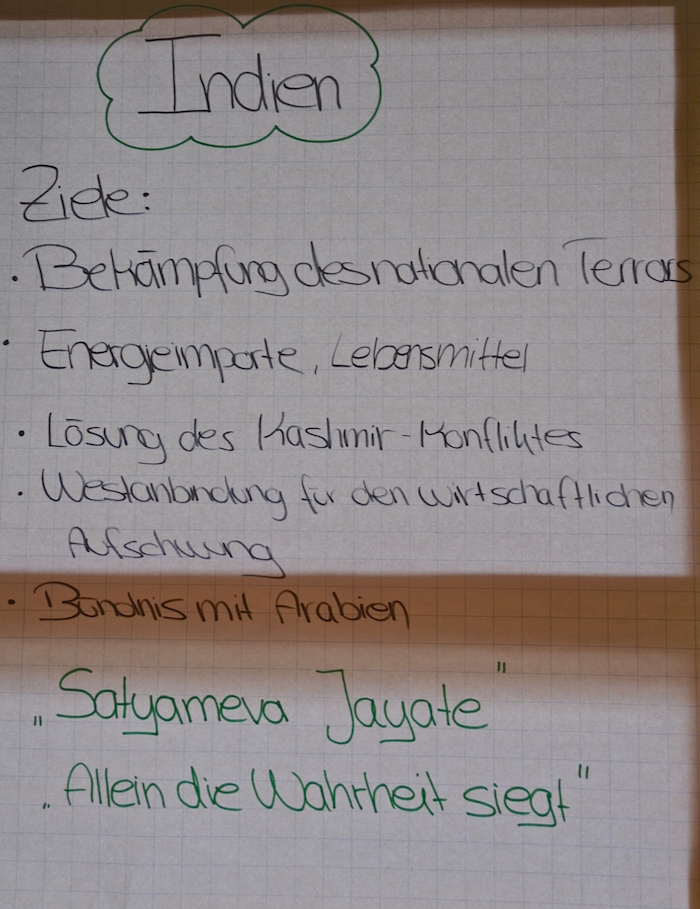 Indien
Ziele:
· Bekämpfung des nationalen Terrors
· Energieimporte, Lebensmittel
· Lösung des Kashmir-Konfliktes
· Westanbindung für den wirtschaftlichen
Aufschwung
· Bündnis mit Arabien
„Satyameva Jayate"
„Allein die Wahrheit siegt"